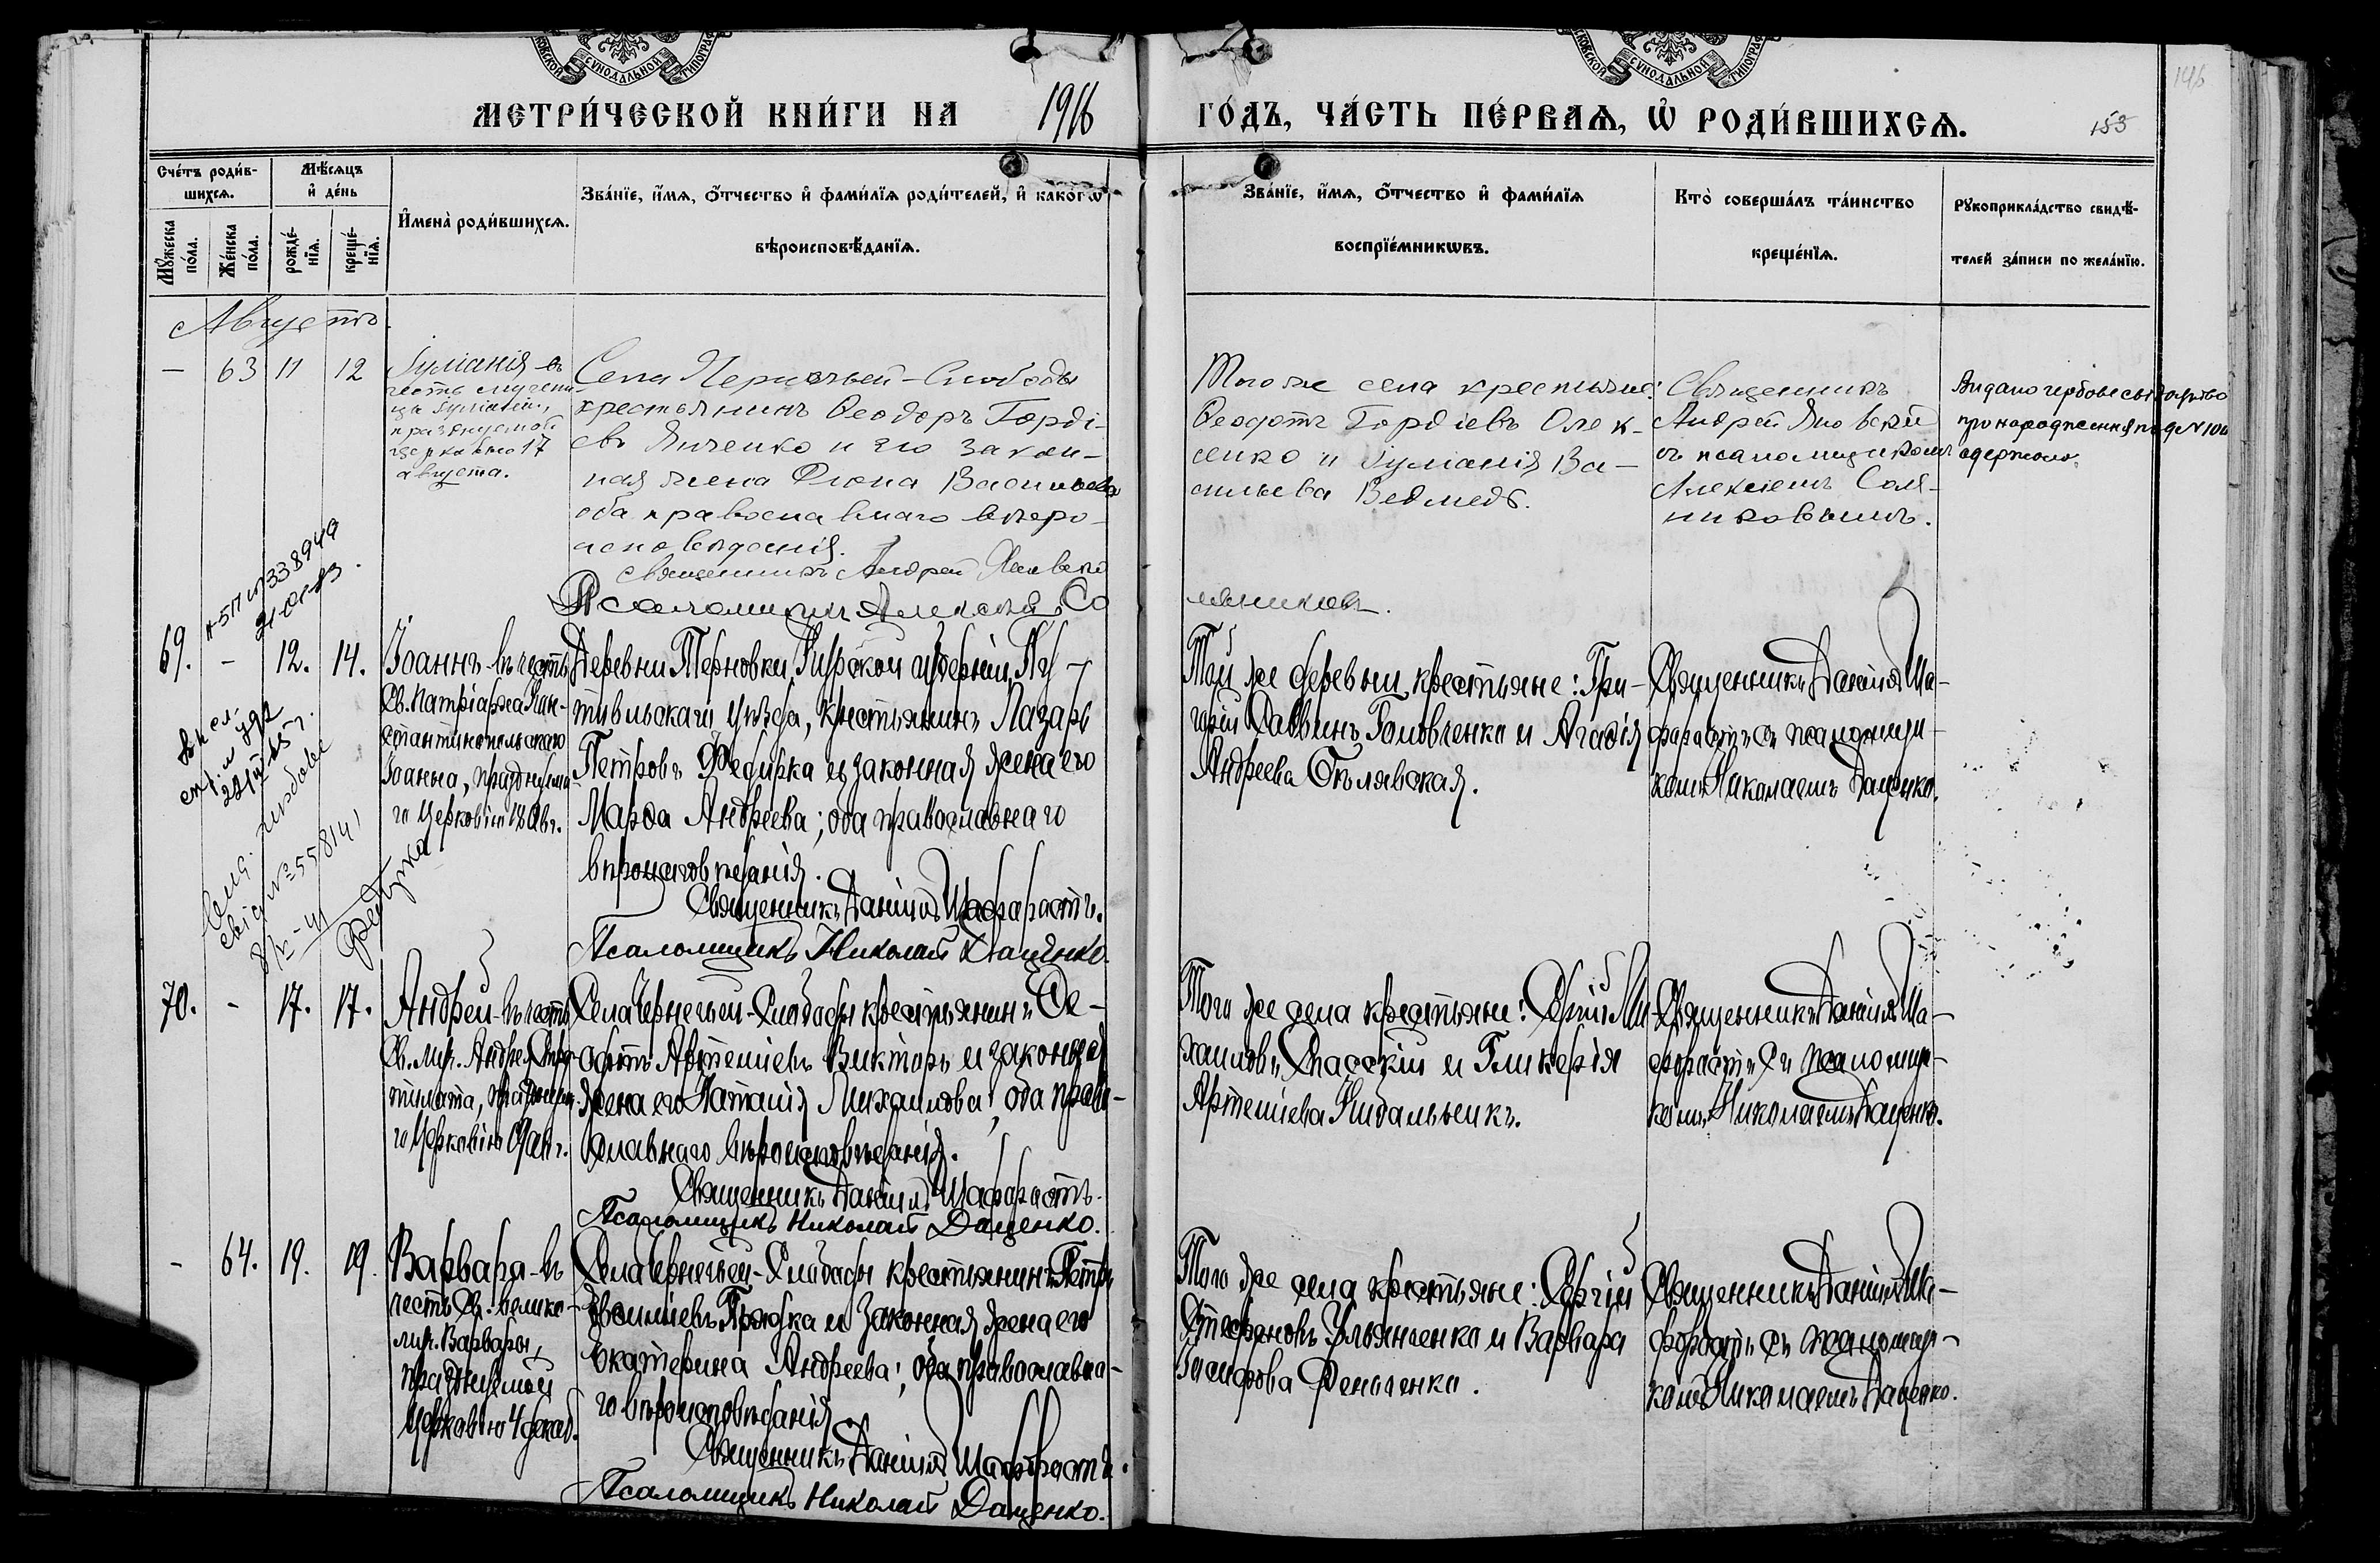 МОСКОВСКОЙ СУНОДАЛЬНОЙ ТИПОГРАФ
МЕТРИ́ЧЕСКОЙ КНИ́ГИ НА 1916 ГО́ДЪ, ЧА́СТЬ ПЕ́РВАѦ, Ѡ҆ РОДИ́ВШИХСѦ.
153
146
Сче́тъ роди́в-
шихсѧ.
Мꙋ́жеска по́ла.
Же́нска по́ла.
Мѣ́сѧцъ
и҆ де́нь
рожде́-
нїѧ.
креще́-
нїѧ.
И҆мена̀ роди́вшихсѧ.
Зва́нїе, и҆́мѧ, ѻ҆́тчество и҆ фами́лїѧ роди́телей, и҆ како́гѡ
вѣроисповѣ́данїѧ.
Зва́нїе, и҆́мѧ, ѻ҆́тчество и҆ фами́лїѧ
воспрїе́мникѡвъ.
Кто̀ соверша́лъ та́инство
креще́нїѧ.
Рꙋкоприкла́дство свидѣ́-
телей за́писи по жела́нїю.
Августъ.
— 63 11 12
Іуліанія въ
честь мучени-
цы Іуліаніи,
празднуемой
церковью 17
августа.
Села Чернечьей-Слободы
крестьянинъ Ѳеодоръ Горді-
евъ Янченко и его закон-
ная жена Ѳекла Васильева
оба православнаго вѣро-
исповѣданія.
Священникъ Андрей Яновскій
Псаломщикъ Алексѣй Со
льниковъ.
Того же села крестьяне:
Ѳеодотъ Гордіевъ Олек-
сенко и Іуліанія Ва-
сильева Ведмедь.
Священникъ
Андрей Яновскій
съ псаломщикомъ
Алексѣемъ Соль-
никовымъ.
Видано гербове свідоцтво
про народження під №
одержало.
№ 338949
69. - 12. 14.
Іоаннъ-въ честь
Св. Патріарха Кон-
стантинопольскаго
Іоанна, празднуема-
го Церковію 18 Авг.
Деревни Терновки, Курской губерніи, Пу-
тивльскаго уѣзда, крестьянинъ Лазарь
Петровъ Федирка и законная жена его
Марѳа Андреева; оба православнаго
вѣроисповѣданія.
Священникъ Даніилъ Шафрастъ.
Псаломщикъ Николай Даценко.
Той же деревни, крестьяне: Гри-
горій Саввинъ Головченко и Агаѳія
Андреева Бѣлявская.
Священникъ Даніилъ Ша-
фрастъ съ псаломщи-
комъ Николаемъ Даценко.
гербове
свід. №558141
Федирка
70. - 17. 17.
Андрей-въ честь
Св. муч. Андрея Стра-
тилата, празднуема-
го Церковію 19 Авг.
Села Чернечьей-Слободы крестьянинъ Ѳе-
одотъ Артеміевъ Викторъ и законная
жена его Наталія Михаилова; оба право-
славнаго вѣроисповѣданія.
Священникъ Даніилъ Шафрастъ.
Псаломщикъ Николай Даценко.
Того же села крестьяне: Сергій Ми-
хаиловъ Спасскій и Гликерія
Артеміева Кидальникъ.
Священникъ Даніилъ Ша-
фрастъ съ псаломщи-
комъ Николаемъ Даценко.
- 64. 19. 19.
Варвара-въ
честь Св. велико-
муч. Варвары,
празднуемой
Церковію 4 декаб.
Села Чернечьей-Слободы крестьянинъ Петръ
и законная жена его
Екатерина Андреева; оба православна-
го вѣроисповѣданія.
Священникъ Даніилъ Шафрастъ.
Псаломщикъ Николай Даценко.
Того же села крестьяне: Сергій
Стефановъ Ульянченко и Варвара
Іосифова Демченко.
Священникъ Даніилъ Ша-
фрастъ съ псаломщи-
комъ Николаемъ Даценко.